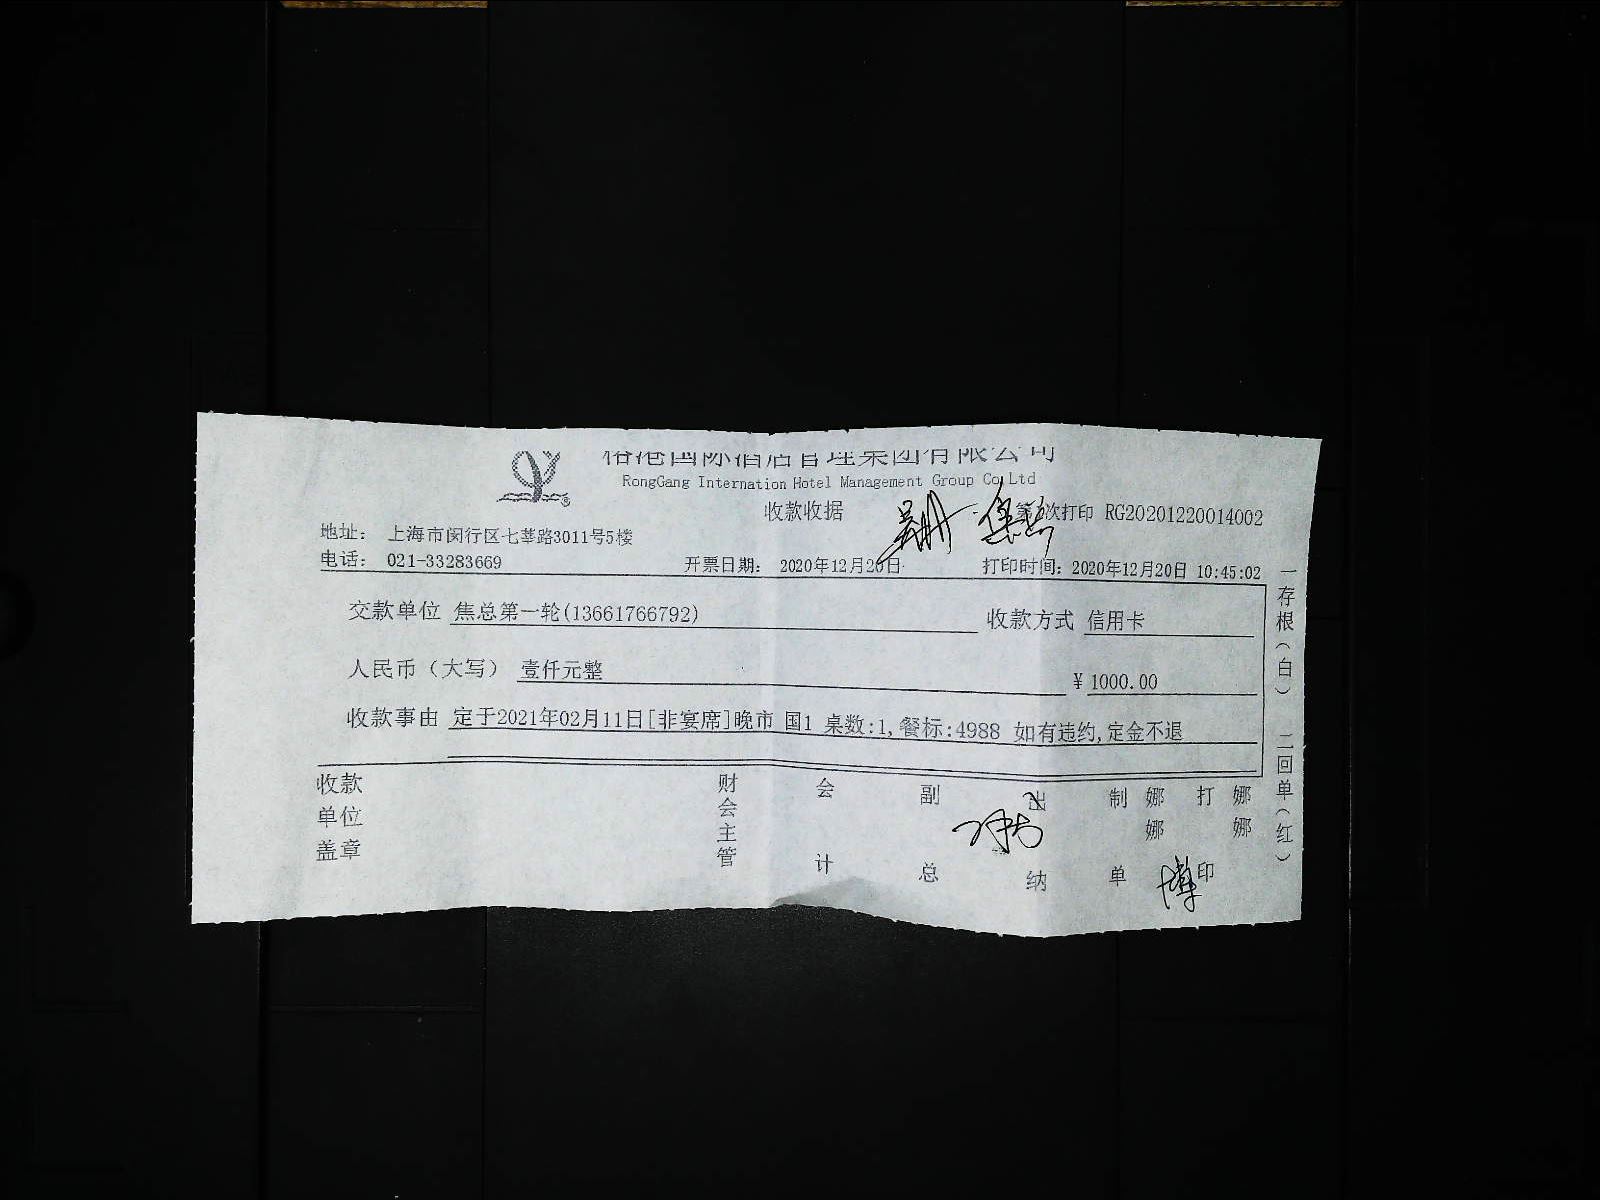 国际酒店管理集团有限公司
RongGang Internation Hotel Management Group Co Ltd
收款收据
次打印 RG20201220014002
地址： 上海市闵行区七莘路3011号5楼
电话： 021-33283669 开票日期： 2020年12月20日 打印时间：2020年12月20日 10:45:02
交款单位 焦总第一轮(13661766792) 收款方式 信用卡
人民币（大写） 壹仟元整 ¥ 1000.00
收款事由 定于2021年02月11日[非宴席]晚市 国1 桌数:1,餐标:4988 如有违约,定金不退
收款单位盖章 财会主管 会计 副总 出纳 制单 娜娜 打印 娜娜
一存根（白） 二回单（红）